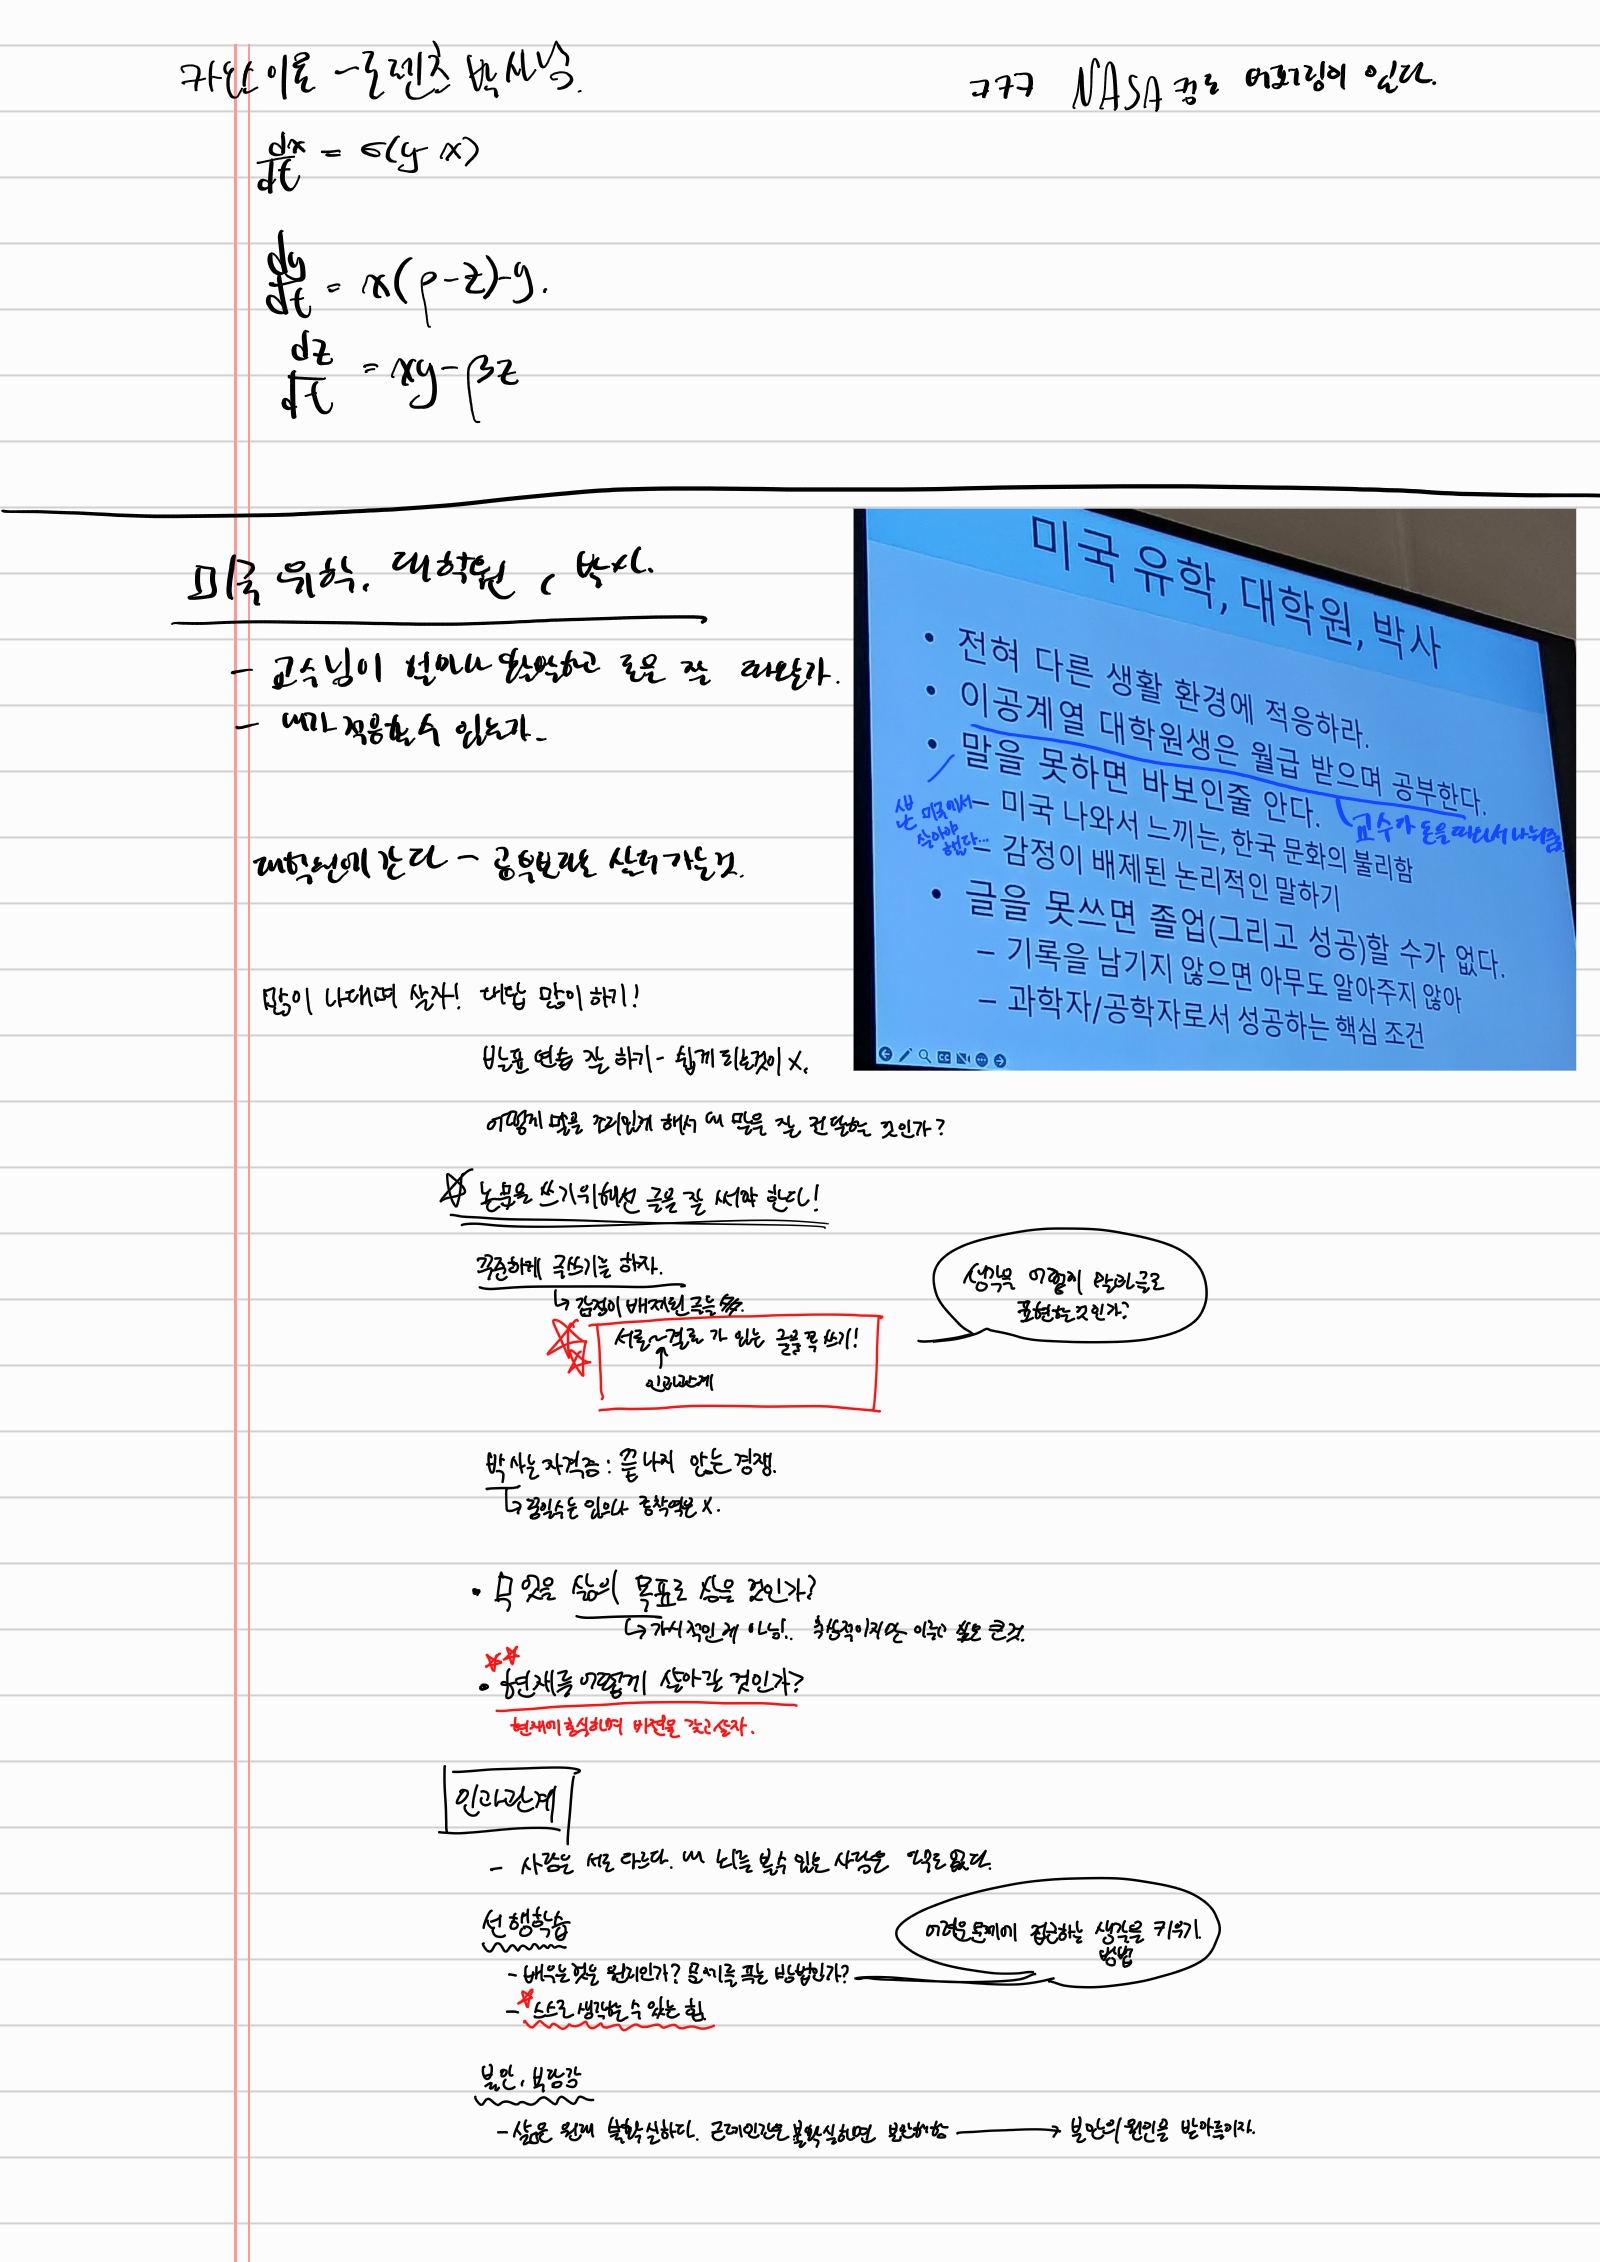 카오스 이론 - 로렌츠 박사님.
ㅋㅋㅋ NASA 컴도 버퍼링이 있다.
dx/dt = σ(y-x)
dy/dt = x(ρ-z)-y.
dz/dt = xy-βz
미국 유학, 대학원, 박사.
- 교수님이 얼마나 압박하고 돈을 잘 따올가.
- 내가 적응할수 있는가.
대학원에 간다 - 공부보다는 살러 가는것.
많이 나대며 살자! 대답 많이 하기!
발표 연습 잘 하기 - 쉽게 되는것이 x.
어떻게 말을 조리있게 해서 내 말을 잘 전달하는 것인가?
☆ 논문을 쓰기위해선 글을 잘 써야 한다!
꾸준하게 글쓰기를 하자.
↳ 감정이 배제된 글을
서론~결론 가 있는 글을 꼭 쓰기!
↑
인과관계
생각을 어떻게 말과 글로
표현하는것인가?
박사는 자격증 : 끝나지 않는 경쟁.
↳ 꿈일수는 있으나 종착역은 x.
• 무엇을 삶의 목표로 삼을 것인가?
↳ 가시적인게 아님!.. 추상적이지만 이루고 싶은 큰것.
☆☆
• 현재를 어떻게 살아갈 것인가?
현재에 충실하며 비전을 갖고 살자.
인과관계
- 사람은 서로 다르다. 내 뇌를 볼수 있는 사람은 나밖에 없다.
선행학습
- 배우는것은 원리인가? 문제를 푸는 방법인가?
어려운 문제에 접근하는 생각을 키우기.
방법
- ☆ 스스로 생각할수 있는 힘.
불안, 부담감
- 삶은 원래 불확실하다. 근데 인간은 불확실하면 불안해함 → 불안의 원인을 받아들이자.
미국 유학, 대학원, 박사
• 전혀 다른 생활 환경에 적응하라.
• 이공계열 대학원생은 월급 받으며 공부한다.
교수가 돈을 따와서 나눠줌.
• 말을 못하면 바보인줄 안다.
– 미국 나와서 느끼는, 한국 문화의 불리함
– 감정이 배제된 논리적인 말하기
난 미국에서
살아야
겠다...
• 글을 못쓰면 졸업(그리고 성공)할 수가 없다.
– 기록을 남기지 않으면 아무도 알아주지 않아
– 과학자/공학자로서 성공하는 핵심 조건